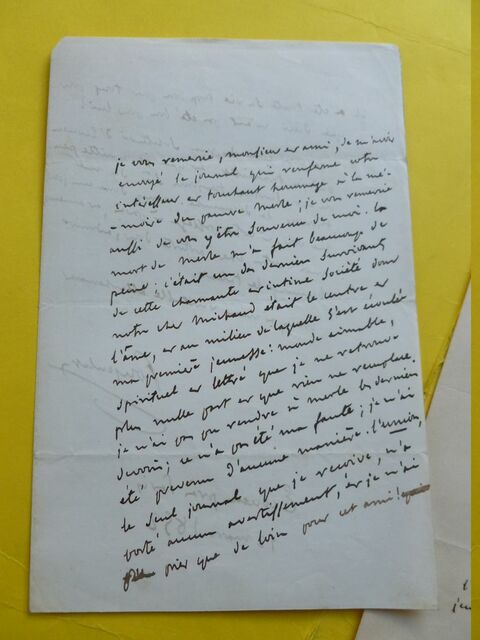 je vous remercie, monsieur et ami, de m'avoir
envoyé le journal qui renferme votre
intéressant et touchant hommage à la mé-
moire du pauvre merle; je vous remercie
aussi de vous y être souvenu de moi. la
mort de merle m'a fait beaucoup de
peine: c'était un des derniers survivants
de cette charmante et intime société dont
notre cher Michaud était le centre et
l'âme, et au milieu de laquelle s'est écoulée
ma première jeunesse: monde aimable,
spirituel et lettré que je ne retrouve
plus nulle part et que rien ne remplace.
je n'ai pas pu rendre à merle les derniers
devoirs; ce n'a pas été ma faute; je n'ai
été prévenu d'aucune manière. l'union,
le seul journal que je reçoive, n'a
porté aucun avertissement, et je n'ai
prier que de loin pour cet ami!